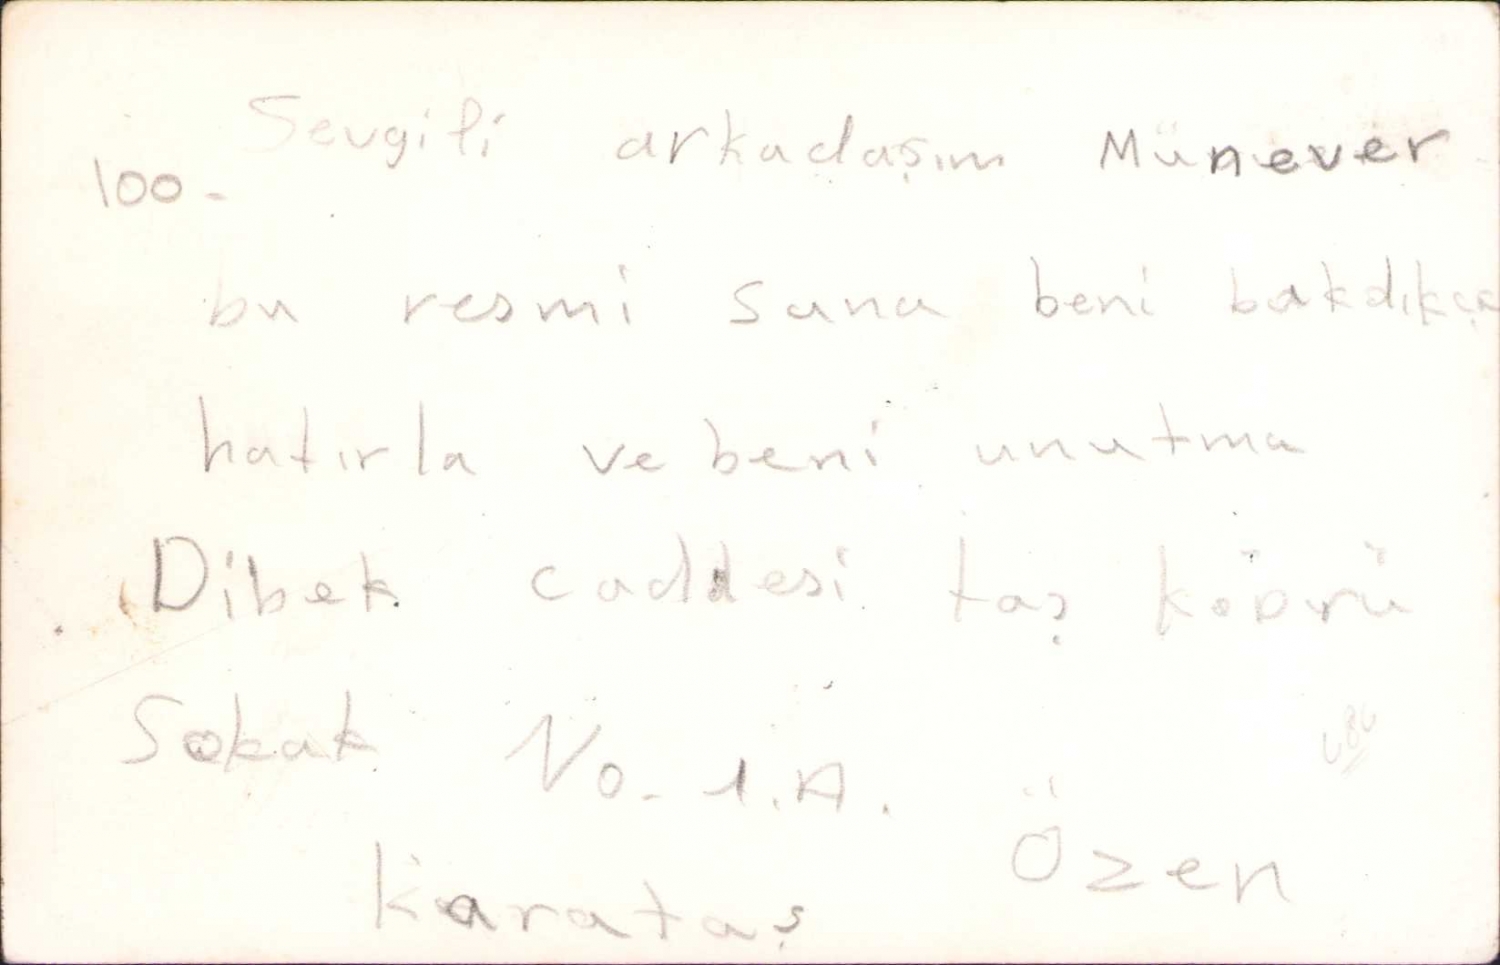 Sevgili arkadaşım Münever
100-
bu resmi sana beni bakdıkça
hatırla ve beni unutma
Dibek caddesi taş köprü
Sokak No-1.A.
Özen
Karataş